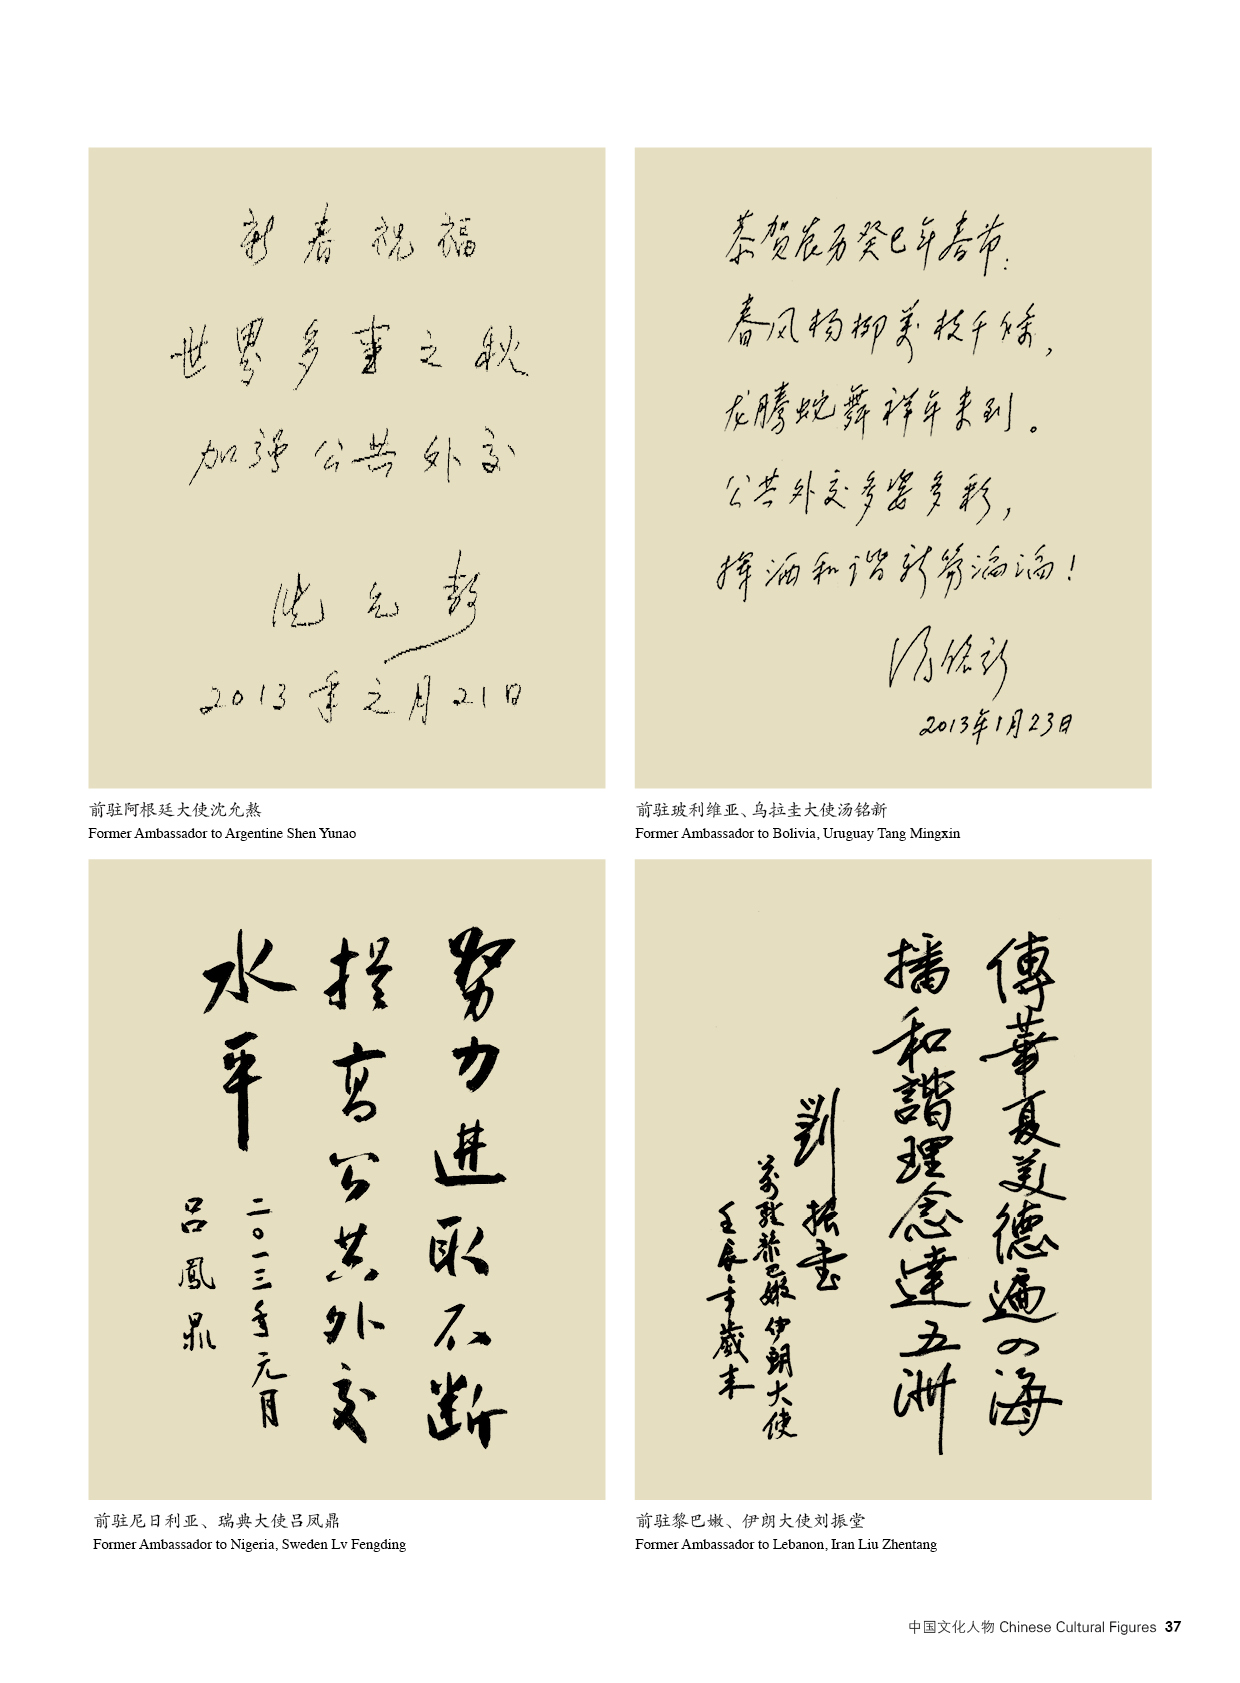 新春祝福
世界多事之秋
加强公共外交
沈允熬
2013年元月21日
前驻阿根廷大使沈允熬
Former Ambassador to Argentine Shen Yunao
恭贺农历癸巳年春节:
春风杨柳万枝千條,
龙腾蛇舞祥年来到。
公共外交多姿多彩,
挥洒和谐新篇滔滔!
汤铭新
2013年1月23日
前驻玻利维亚、乌拉圭大使汤铭新
Former Ambassador to Bolivia, Uruguay Tang Mingxin
努力进取不断
提高公共外交
水平
二〇一三年元月
吕鳳鼎
前驻尼日利亚、瑞典大使吕凤鼎
Former Ambassador to Nigeria, Sweden Lv Fengding
傳華夏美德遍四海
播和諧理念達五洲
劉振堂
前駐黎巴嫩伊朗大使
壬辰年歲末
前驻黎巴嫩、伊朗大使刘振堂
Former Ambassador to Lebanon, Iran Liu Zhentang
中国文化人物 Chinese Cultural Figures 37